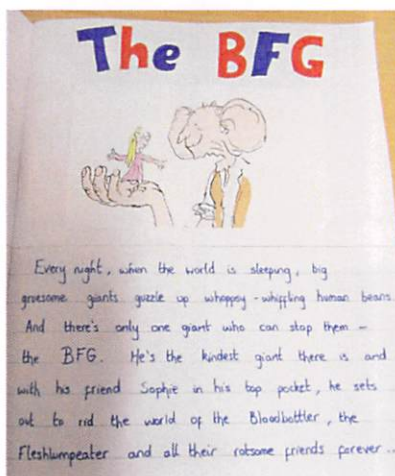 The BFG
Every night, when the world is sleeping, big
gruesome giants guzzle up whoppsy-whiffling human beans.
And there's only one giant who can stop them -
the BFG. He's the kindest giant there is and
with his friend Sophie in his top pocket, he sets
out to rid the world of the Bloodbottler, the
Fleshlumpeater and all their rotsome friends forever...